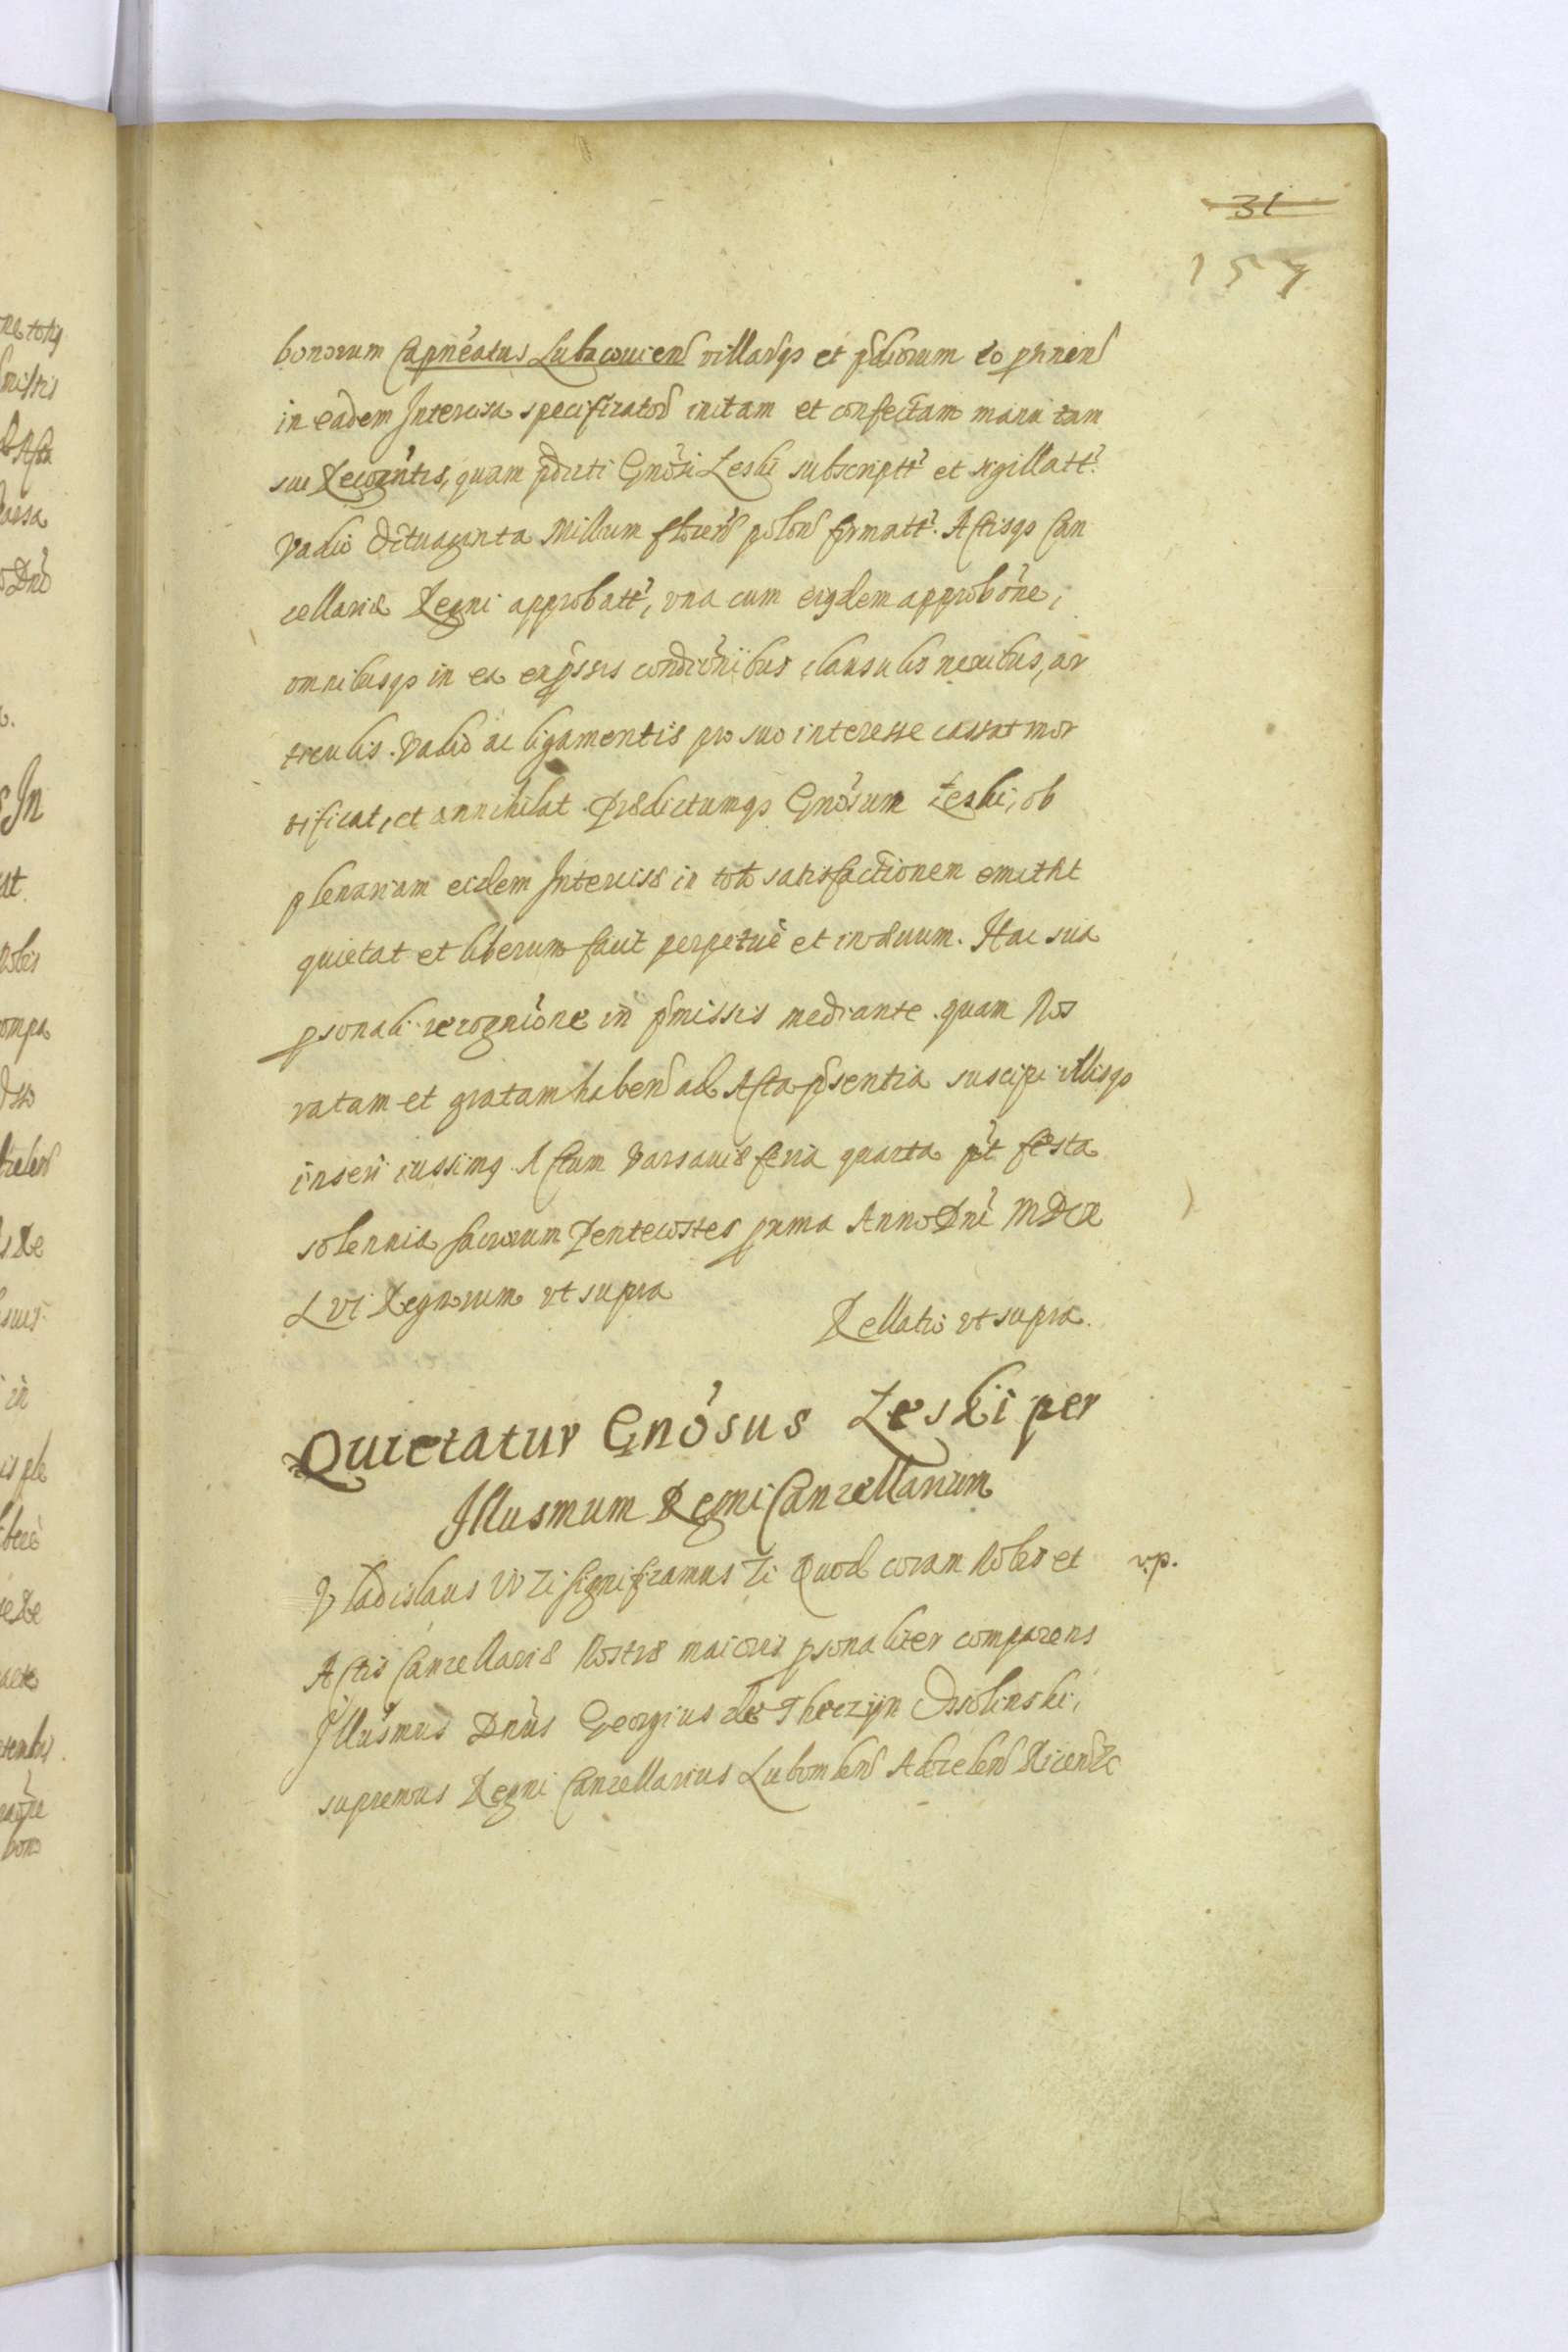 31
157
bonorum Capneatus Lubacouien villarqs et pdiorum eo ptinen
in eadem Intercisa specificator initam et confectam manu tam
sui Recogntis, quam pdicti Gnosi Leski subscriptt et sigillatt
vadio Octuaginta Millium floren polon firmatt. Actisqs Can
cellariæ Regni approbatt, vna cum eiusdem approbone,
omnibusqs in ea expssis condicionibus clausulis nexibus, ar
ticulis. vadio ac ligamentis pro suo interesse cassat mor
tificat, et annihilat. Prædictumqs Gnosum Leski, ob
plenariam eidem Intercisæ in toto satisfactionem emittit
quietat et liberum facit perpetue et in æuum. Hac sua
psonali recognione in pmissis mediante. quam Nos
ratam et gratam haben ad Acta psentia suscipi illisqs
inseri iussimus. Actum Varsauiæ feria quarta pt festa
solennia sacrorum Pentecostes prima Anno Dni MDCX
LVI Regnorum vt supra
Rellatio vt supra.
Quietatur Gnosus Leski per
Illusmum Regni Cancellarium
Vladislaus IV Zi significamus Zi Quod coram Nobis et v.p.
Actis Cancellariæ Nostræ maioris psonaliter comparens
Illusmus Dnus Georgius de Thęczyn Ossolinski,
supremus Regni Cancellarius Lubomlen Adzelen Ricen &c